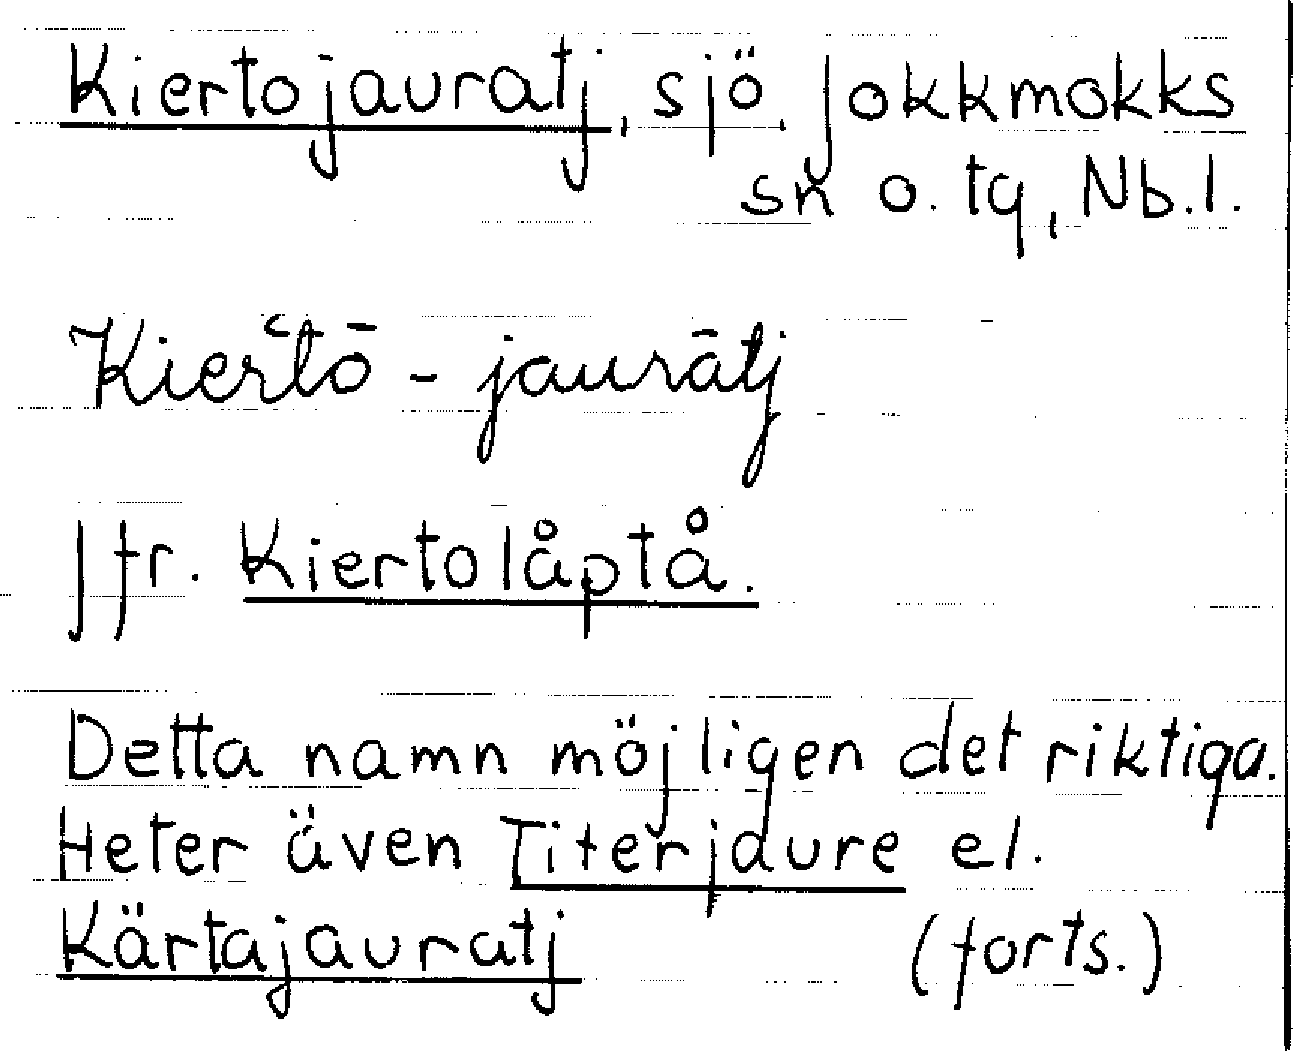 Kiertojauratj, sjö, Jokkmokks
sn o. tg, Nb.l.
Kierʿtō-jaurātj
Jfr. Kiertolåptå.
Detta namn möjligen det riktiga.
Heter även Titerjaure el.
Kärtajauratj (forts.)